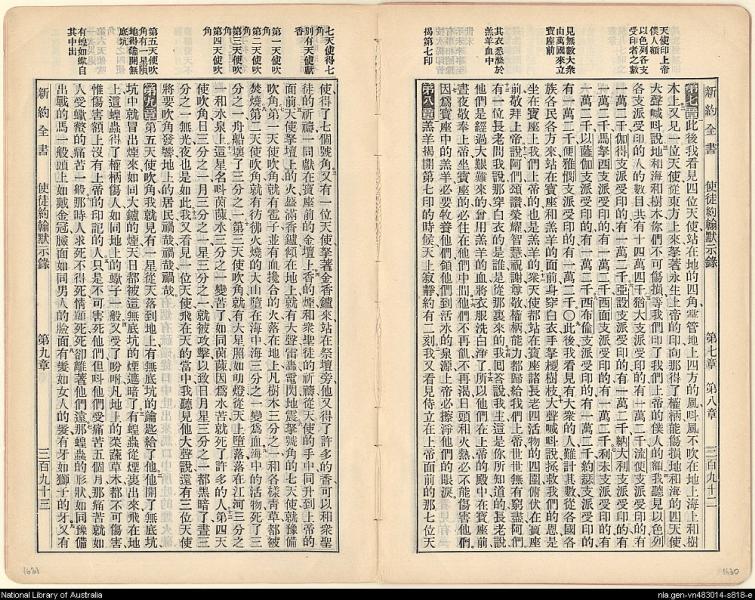 新約全書 使徒約翰默示錄 第七章 第八章 三百九十二
天使印上帝
僕人額
以色列各支
受印者之數
見無數大衆
由萬國來立
寶座前
其衣悉於
羔羊血中
揭第七印
第七章此後我看見四位天使站在地的四角掌管地上四方的風叫風不吹在地上海上和樹
木上又見一位天使從東方上來拏著永生上帝的印向那得了權柄能傷損地和海的四天使
大聲喊叫說地和海和樹木你們不可傷損等我們印了我們上帝的僕人的額我聽見以色列
各支派受印的人的數目共有十四萬四千猶大支派受印的有一萬二千流便支派受印的有
一萬二千伽得支派受印的有一萬二千亞設支派受印的有一萬二千納大利支派受印的有
一萬二千馬拏西支派受印的有一萬二千西面支派受印的有一萬二千利未支派受印的有
一萬二千以薩迦支派受印的有一萬二千西布倫支派受印的有一萬二千約瑟支派受印的
有一萬二千便雅憫支派受印的有一萬二千〇此後我看見有大衆的人難計其數從各國各
族各民各方來站在寶座和羔羊的面前身穿白衣手拏椶樹枝大聲喊叫說拯救我們的恩是
坐在寶座上我們上帝的也是羔羊的衆天使都站在寶座諸長老四活物的四圍俯伏在寶座
前敬拜上帝說阿們頌讚榮耀智慧祝謝尊敬權柄能力都歸給我們上帝世世無窮盡阿們
有一位長老問我說那穿白衣的是誰是從那裏來的我回答說我主這是你所知道的長老說
他們是經過大艱難來的曾用羔羊的血將衣服洗白淨了所以他們在上帝的殿中在寶座前
晝夜敬奉上帝坐寶座的必住在他們中間他們不再飢不再渴日頭和火熱必不能傷害他們
因爲寶座中的羔羊必要牧養他們領他們到活水的泉源上帝必擦淨他們的眼淚
第八章羔羊揭開第七印的時候天上寂靜約有二刻我又看見侍立在上帝面前的那七位天
1630
七天使得七
角
別有天使獻
香
第一天使吹
角
第二天使吹
角
第三天使吹
角
第四天使吹
角
第五天使吹
角有一星隕
地得鑰開無
底坑
有蝗如蠍自
其中出
使得了七個號角又有一位天使拏著金香鑪來站在祭壇旁他又得了許多的香可以和衆聖
徒的祈禱一同獻在寶座前的金壇上香的煙和衆聖徒的祈禱從天使的手中同升到上帝的
面前天使拏壇上的火盛滿香鑪傾在地上就有大聲雷轟電閃地震拏號角的七天使就豫備
吹角第一天使吹角就有雹子並有血攙合的火落在地上凡樹木三分之一和各樣青草都被
焚燒第二天使吹角就有彷彿火燒的大山墮在海中海三分之一變爲血海中的活物死了三
分之一舟船壞了三分之一第三天使吹角就有大星照如明燈從天上墮落落在江河三分之
一和水泉上這星名叫茵蔯水三分之一變苦了如同茵蔯因爲水苦就死了許多的人第四天
使吹角日三分之一月三分之一星三分之一就被攻擊以致日月星三分之一都黑暗了晝三
分之一無光夜也是如此我又看見一位天使飛在天的當中我聽見他大聲說還有三位天使
將要吹角發響地上的居民禍哉禍哉禍哉
第九章第五天使吹角我就見有一星從天落到地上有無底坑的鑰匙給了他他開了無底坑
坑中就冒出煙來如同大鑪的煙天日都被這無底坑的煙遮暗了有蝗蟲從煙裏出來飛在地
上這蝗蟲得了權柄傷人如同地上的蠍子一般又受了吩咐凡地上的菜蔬草木都不可傷害
惟傷害額上沒有上帝的印記的人只是不可害死他們但叫他們受痛苦五個月那痛苦就如
人受蠍螫的痛苦一般那時人求死不得死情願死死卻離著他們遠那蝗蟲的形狀如同豫備
出戰的馬一般頭上如戴金冠臉面如同男人的臉面有髮如女人的髮有牙如獅子的牙又有
新約全書 使徒約翰默示錄 第九章 三百九十三
1631
National Library of Australia
nla.gen-vn483014-s818-e